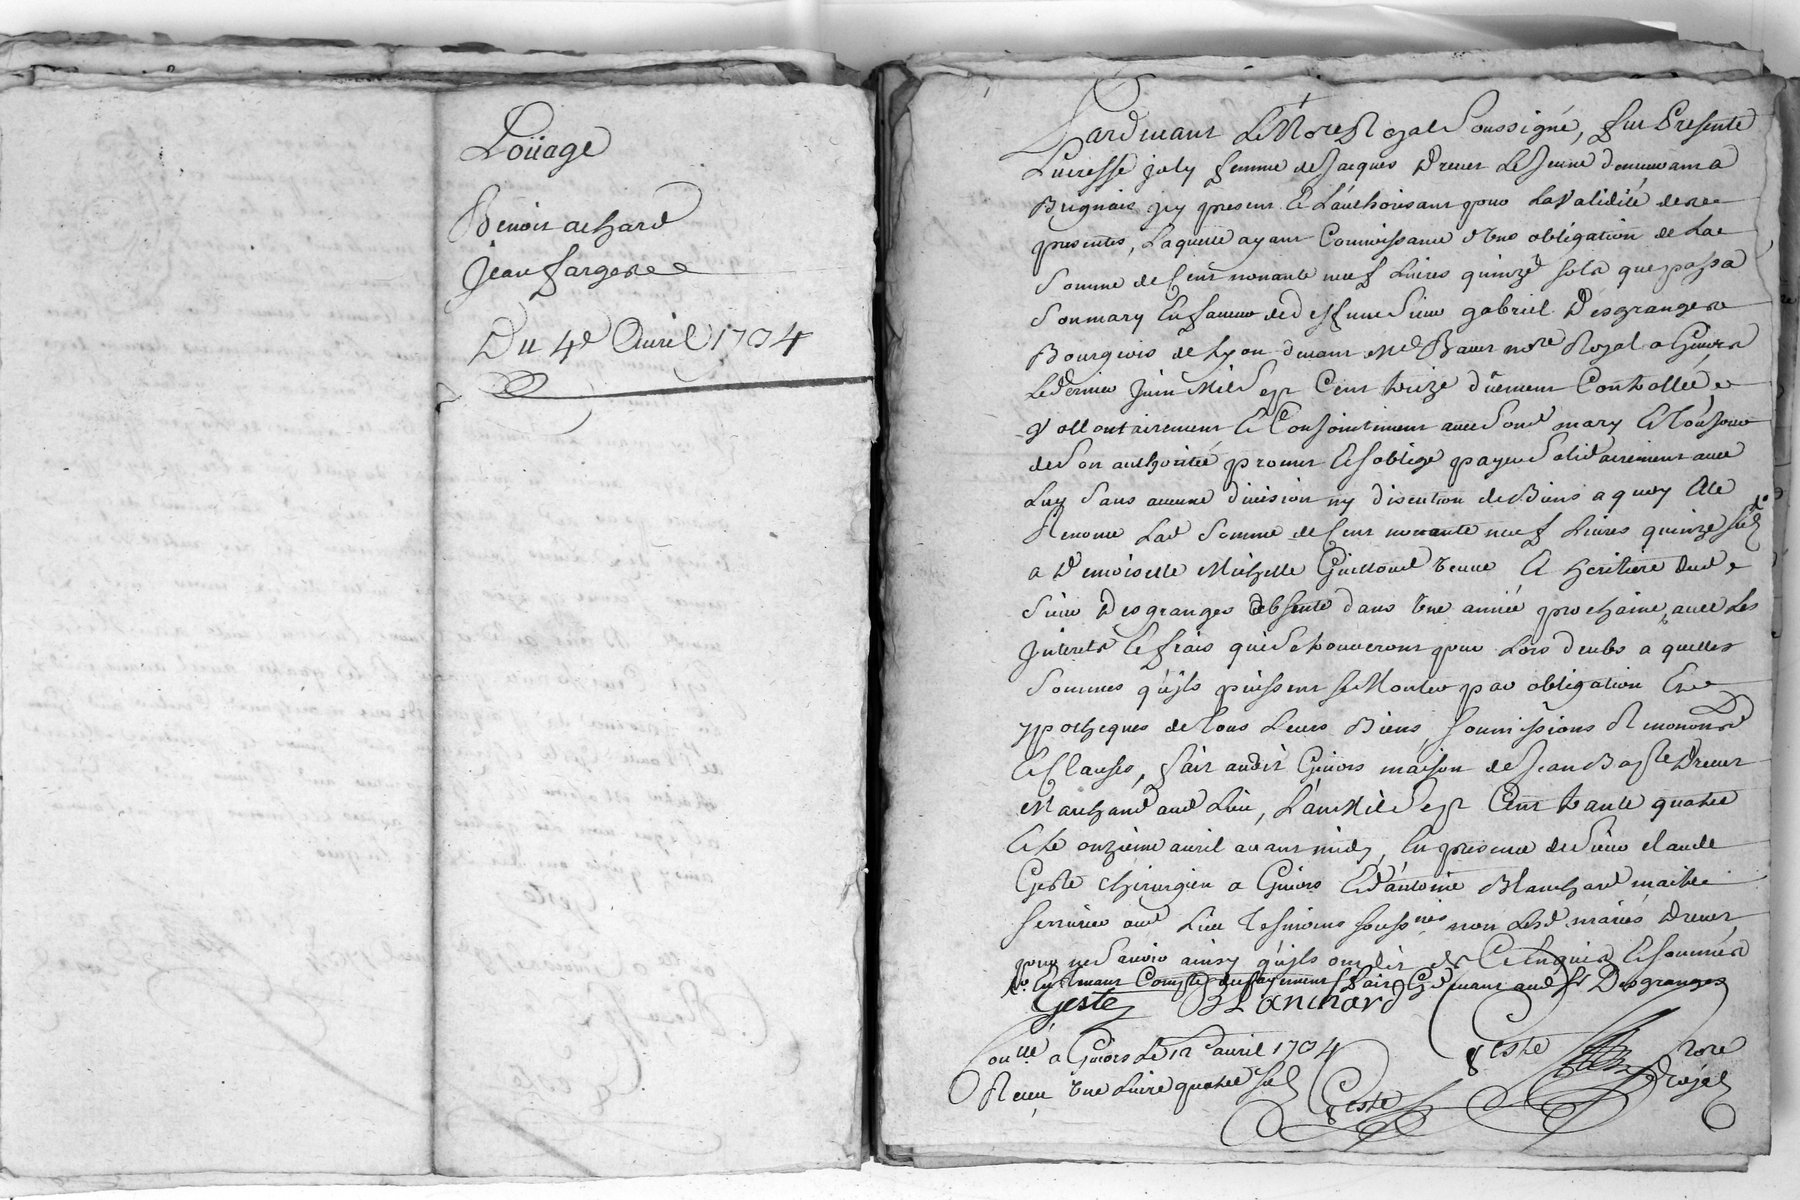 Loüage
Benoit achard
Jean fargere
Du 4e Avril 1734
Pardevant Le Nore Royal Soussigné, fut Presente
Lucresse joly femme de Jacques Drevet Le Jeune demeurant a
Brignais icy present et L'authorisant pour La validité de ces
presentes, Laquelle ayant Connoissance d'une obligation de La
Somme de Cent nonante neuf Livres quinze sols que passa
Son mary En faveur de deffunt Sieur gabriel Desgranges
Bourgeois de Lyon devant Me Nore Royal a Givors
Le dernier Juin Mil Sept Cent treize düement Controllée
vollontairement et Conjointement avec Sond mary et
de Son authorité promet et s'oblige payer Solidairement avec
Luy Sans aucune division ny discution de Biens a quoy Elle
Renonce Lad Somme de Cent nonante neuf Livres quinze sols
a Demoiselle Michelle Guillond veuve et heritiere dud
Sieur Desgranges absente dans Une année prochaine, avec Les
Interets et frais qui Se trouveront pour Lors deubs a quelles
Sommes qu'ils puissent se Monter par obligation et
ypotheques de tous Leurs Biens, soumissions Renonons
et Clauses, fait audit Givors maison de Jean Bapte Drevet
Marchand aud Lieu, L'an Mil Sept Cent trante quatre
et Le onzieme avril avant midy, En presence de Sieur Claude
Geste chirurgien a Givors et d'antoine Blanchard maitre
serrurier aud Lieu Tesmoins soussnés non Lesd mariés Drevet
pour ne Savoir ainsy qu'ils ont dit de Ce Enquis et sommés
Compte payement fait Cydevant aud Sr Desgranges
Geste Blanchard
Geste Nore Royal
Conllé a Givors Le 12 avril 1734
Receu Une Livre quatre sols
Geste